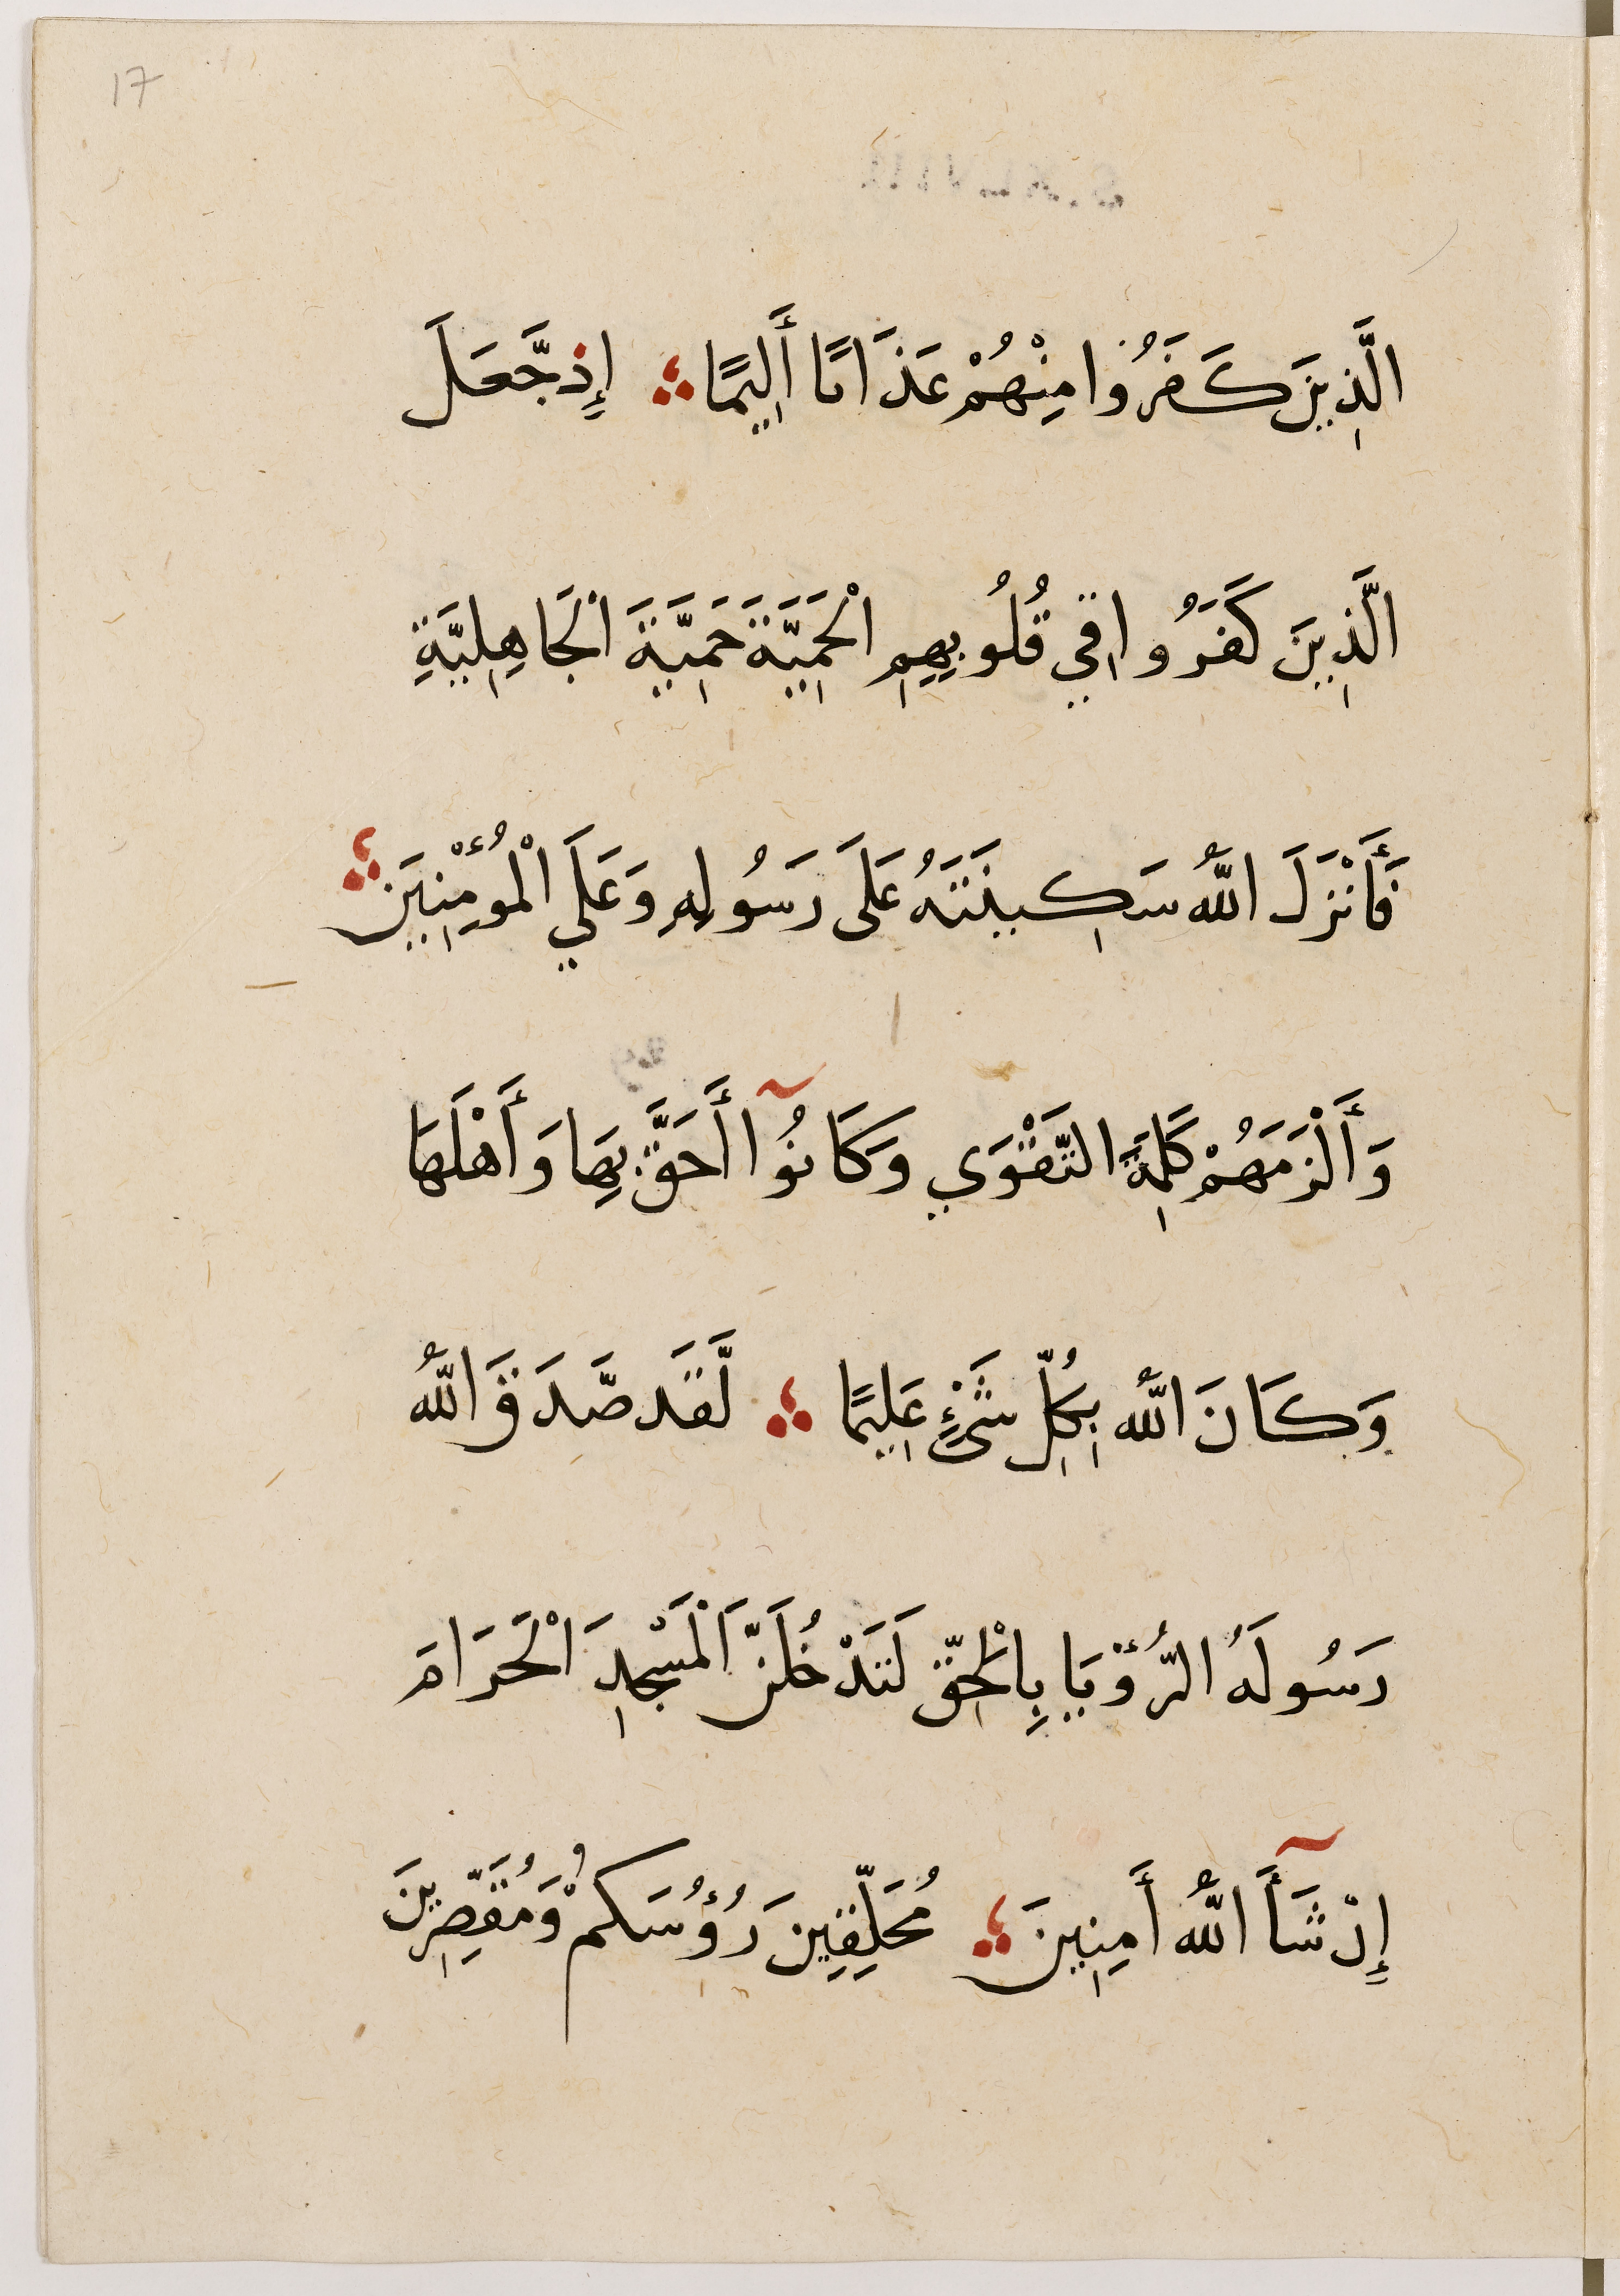 17
الَّذِينَ كَفَرُوا مِنْهُمْ عَذَابًا أَلِيمًا ؞ إِذ جَّعَلَ
الَّذِينَ كَفَرُوا فِي قُلُوبِهِمِ الْحَمِيَّةَ حَمِيَّةَ الْجَاهِلِيَّةِ
فَأَنْزَلَ اللَّهُ سَكِينَتَهُ عَلَى رَسُولِهِ وَعَلَي الْمُؤْمِنِينَ ؞
وَأَلْزَمَهُمْ كَلِمَةَ التَّقْوَي وَكَانُوآ أَحَقَّ بِهَا وَأَهْلَهَا
وَكَانَ اللَّهُ بِكُلِّ شَيْءٍ عَلِيمًا ؞ لَّقَد صَّدَقَ اللَّهُ
رَسُولَهُ الرُّؤْيَا بِالْحَقِّ لَتَدْخُلَنَّ الْمَسْجِدَ الْحَرَامَ
إِنْ شَآأَ اللَّهُ أَمِنِينَ ؞ مُحَلِّقِينَ رَُؤُسَكُمْ وَمُقَصِّرِينَ